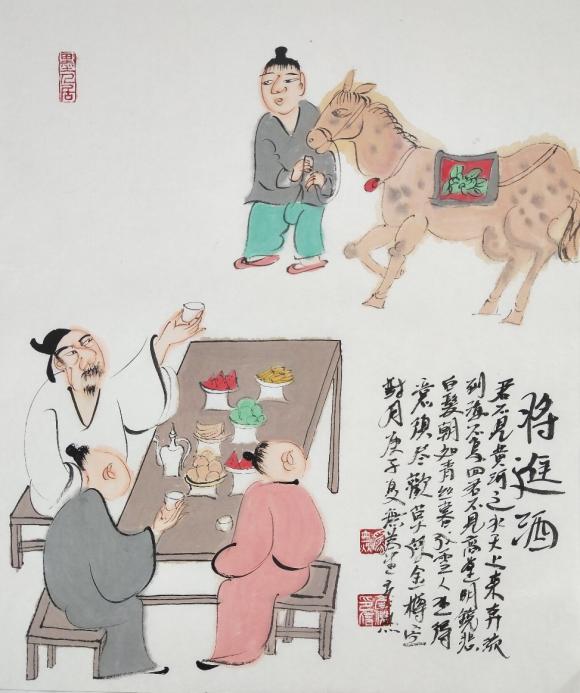 将進酒
君不見黄河之水天上来奔流
到海不复回君不見高堂明鏡悲
白髮朝如青丝暮成雪人生得
意須尽歡莫使金樽空
對月庚子夏